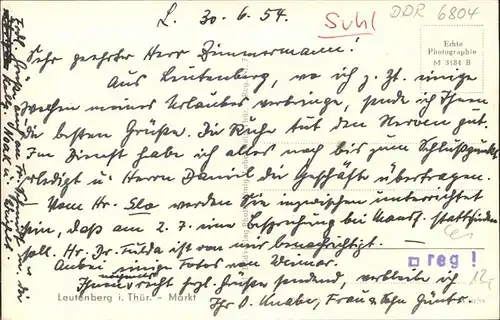 L. 30.6.54.
Suhl
DDR 6804
Sehr geehrter Herr Zimmermann!
Echte
Photographie
M 3184 B
Aus Leutenberg, wo ich z. Zt. einige
Wochen meines Urlaubes verbringe, sende ich Ihnen
die besten Grüße. Die Ruhe tut den Nerven gut.
Im Dienst habe ich alles noch bis zum Schluß
erledigt u. Herrn Daniel die Geschäfte übertragen.
Vom Hr. werden Sie inzwischen unterrichtet
sein, daß am 2. 7. eine Besprechung bei stattfinden
soll. Hr. Dr. Fulda ist von mir benachrichtigt.
Anbei einige Fotos von Weimar.
reg!
Ihnen nochmals herzl. Grüße sendend, verbleibe ich
Leutenberg i. Thür. - Markt
Ihr O. Knabe, Frau u. Sohn Günter.